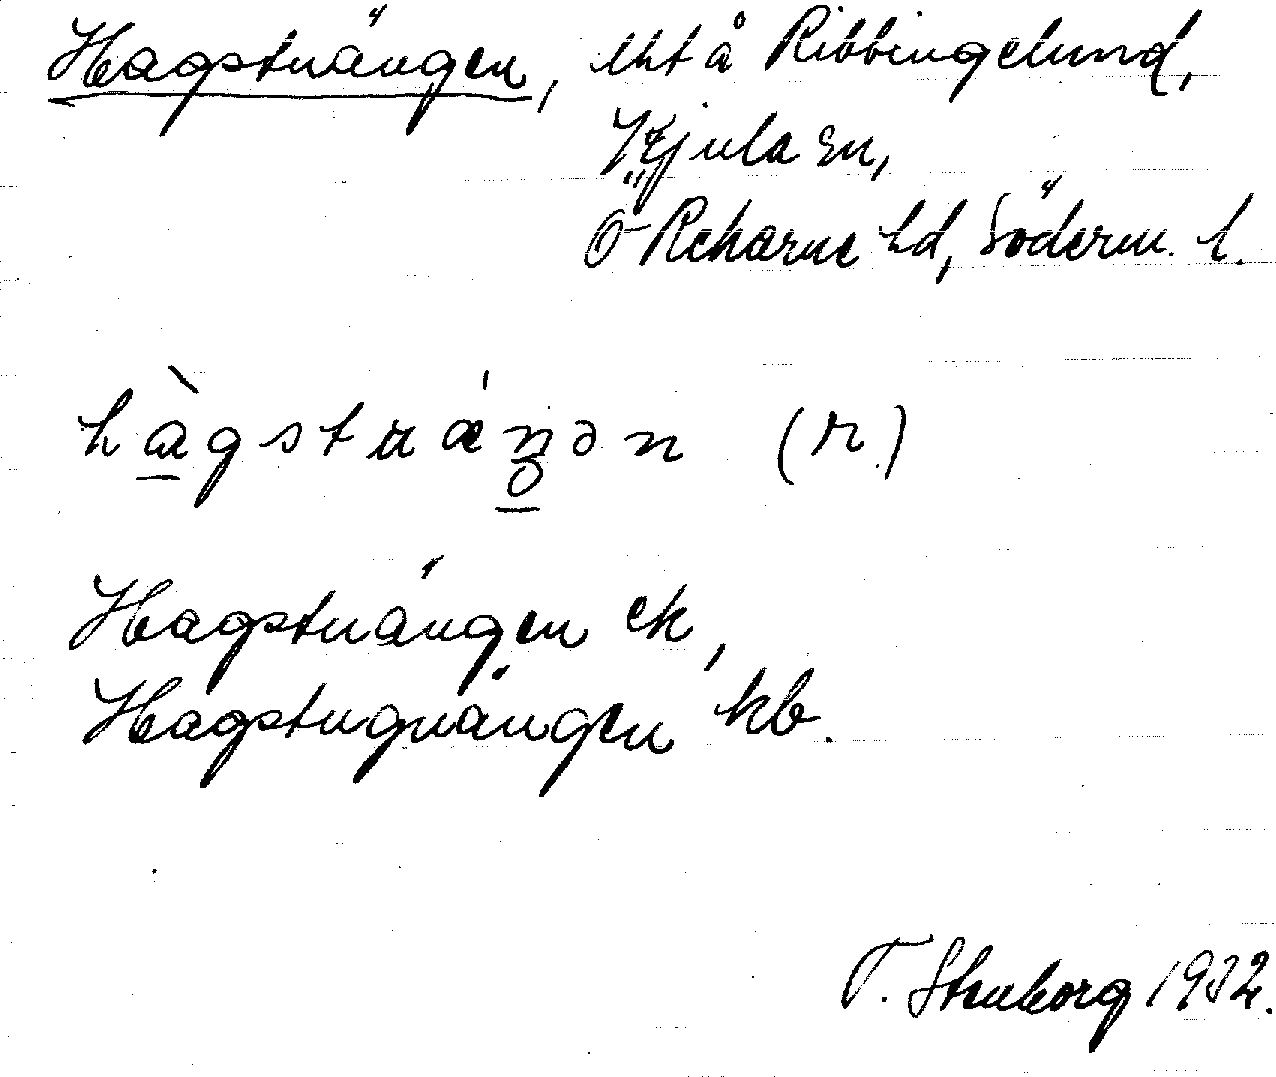 Hagstuängen, lht å Ribbingelund,
Kjula sn,
Ö Rekarne hd, Söderm. l.
(r)
Hagstuängen ek,
Hagstuguängen kb.
T. Stenborg 1932.